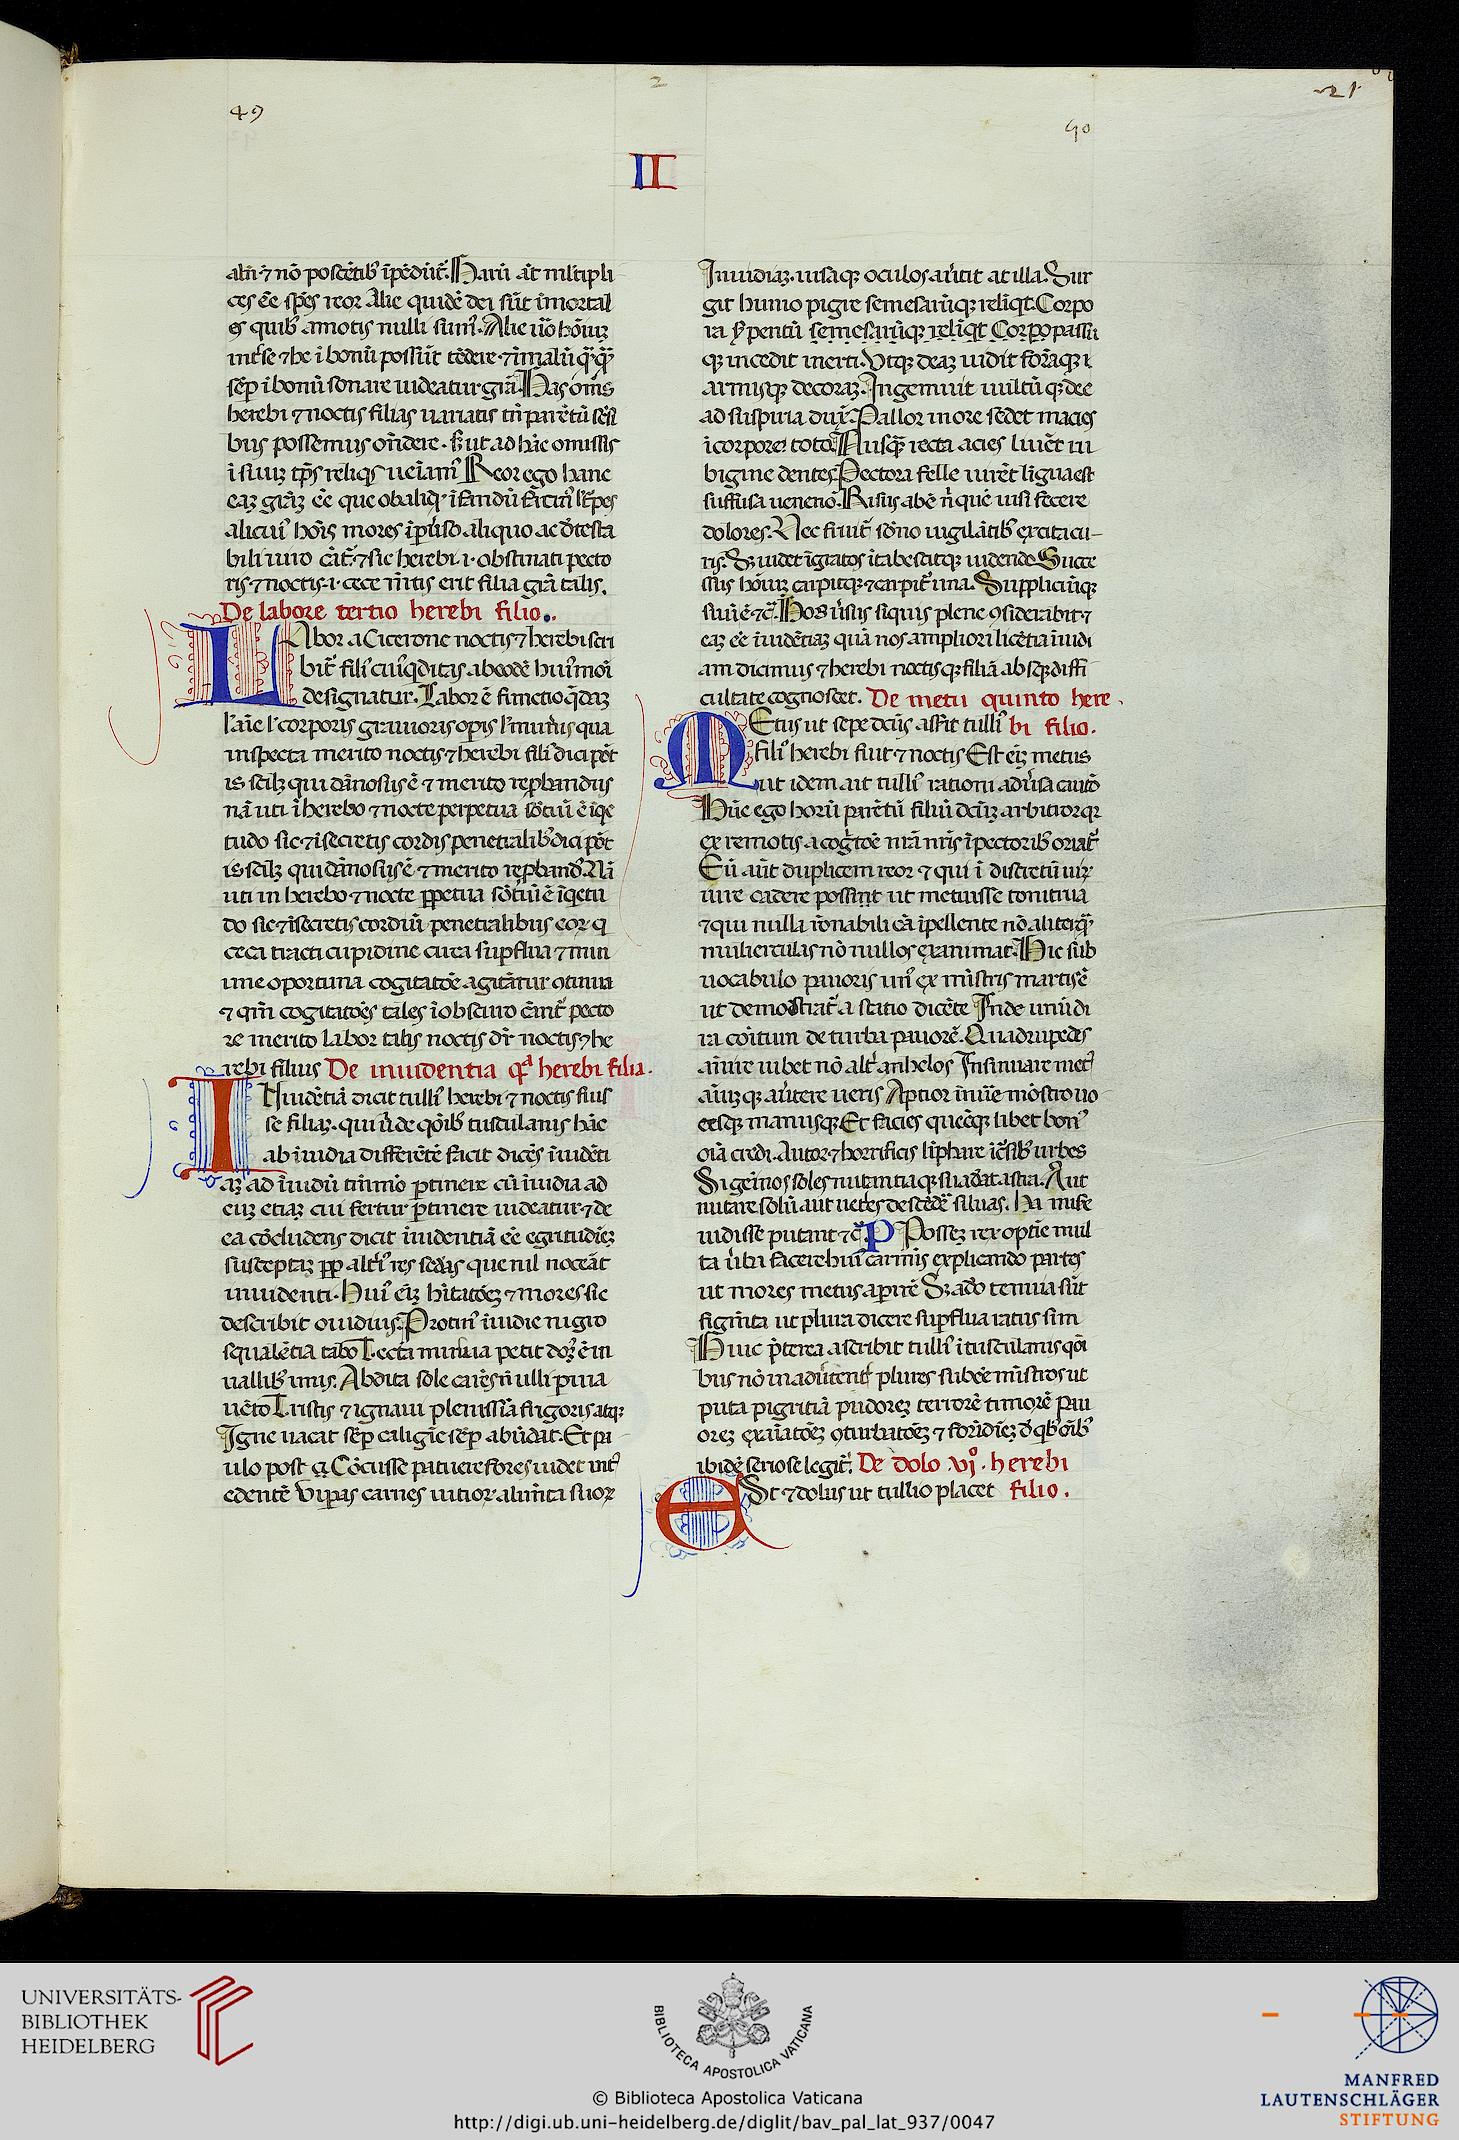 49
2
50
21
II
alit̄ ⁊ nō poscētib᷒ īpēdūt᷑. Harū āt ml̄tipli
ces ēe sp̄es reor Alie quidē dei sūt īmortal
es quib᷒ amotis nulli sum᷒. Alie ūo hōıuꝫ
int᷑ se ⁊ he ī bonū possūt tēdere ⁊ ī malū qͣqͣ
sēp ī bonū sonare uideatur grā. Has om̄s
herebi ⁊ noctis filias uariatis tn̄ parētū sēsi
bus possemus on̄dere. S᷑ ut ad hāc omissis
ī suuꝫ tp̄s reliqͥs ueīam᷒ Reor ego hanc
eaꝫ grāꝫ ēe que ob aliqͥ ī fandū fac̄in᷒ l᷑ t̄pes
alicui᷒ hoı̄s mores īp̄uiso aliquo ac d̄testa
bili iuıo cāt᷑. ⁊ sic herebi .i. obstinati pecto
ris ⁊ noctis .i. cece m̄tis erit filia grā talis.
De labore tertio herebi filio.
LAbor a Cicerone noctis ⁊ herebi scri
bit᷑ fili᷒ cui᷒ qͥditas ab eodē hui᷒ moı̄
designatur. Labor ē functio qͣdaꝫ
l᷑ aīe l᷑ corporis grauioris opis l᷑ mun̄is qua
inspecta merito noctis ⁊ herebi fili᷒ dici pōt
is scilꝫ qui dānosus ē ⁊ merito rep̄bandus
nā uti ī herebo ⁊ nocte perpetua sōtıū ē īqͥe
tudo sic ⁊ ī secretis cordis penetralib᷒ dici pōt
is scilꝫ qui dānosus ē ⁊ merito rep̄band᷒. Nā
uti in herebo ⁊ nocte ꝑpetua sōtıū ē īqͥetu
do sic ⁊ ī secretis cordiū penetralibus eoꝝ q
ceca tracti cupidine cura suꝑflua ⁊ min
ime oportuna cogitatōe agitātur ꝯtinua
⁊ qm̄ cogitatōes tales ī obscuro cānt᷑ pecto
re merito labor talis noctis dr̄ noctis ⁊ he
rebi filius De inuidentia qͣrta herebi filia.
INuidētiā dicit tulli᷒ herebi ⁊ noctis fuis
se filiaꝫ. qui ūde qōıb᷒ tusculanis hāc
ab īuidia differētē facit dicēs īuidēti
aꝫ ad īuidū tm̄mo ꝑtinere cū īuidia ad
euꝫ etiaꝫ cui fertur ꝑtinere uideatur ⁊ de
ea cōcludens dicit īuidentiā ēe egritudīeꝫ
susceptaꝫ ꝓp alt᷑i᷒ res secd̄as que nil noceāt
inuidenti. Hui᷒ eīꝫ h̄itatōeꝫ ⁊ mores sic
describit ouidius. Protin᷒ īuidie nigro
squalētia tabo Tecta minerua petit dom᷒ ē in
uallib᷒ imis. Abdita sole carēs n̄ ulli ꝑuia
uēto Tristis ⁊ ignaui plenissīa frigoris atqꝫ
Igne uacat sēp caligīe sēp abūdat. Et pa
ulo post ġ Cōcusse patuere fores uidet int᷑
edentē Vipas carnes uitioꝝ alim̄ta suoꝝ
Inuidiaꝫ. uisaqꝫ oculos aūtit at illa. Sur
git humo pigre semesarūqꝫ relīqͥt. Corpo
ra s᷑pentū semesarūqꝫ relīqͥt Corpo passu
qꝫ incedit inerti. Vtqꝫ deaꝫ uidit formaqꝫ ⁊
armisqꝫ decoraꝫ. Ingemuit uultūqꝫ dee
ad suspiria dux̄. Pallor in ore sedet macies
ī corpore toto. Nusqͣ recta acies liuēt ru
bigine dentes. Pectora felle uirēt lingua est
suffusa ueneno. Risus abē n̄ quē uisi fecere
dolores. Nec fruit᷑ sōno uigilātib᷒ excita cu-
ris. Sꝫ uidet īgratos ītabescitqꝫ uidendo Succe
ssus hōıuꝫ carpitqꝫ ⁊ carpit᷑ una. Suppliciūqꝫ
suū ē ⁊c̄. Hos ūsus siquis plene ꝯsiderabit ⁊
eaꝫ ēe īuidētiaꝫ quā nos ampliori licētia īuidi
am dicimus ⁊ herebi noctisqꝫ filiā absqꝫ diffi
cultate cognoscet. De metu quinto here
MEtus ut sepe dcūs asserit tulli᷒ bi filio.
fili᷒ herebi fuit ⁊ noctis Est eīꝫ metus
ut idem ait tulli᷒ rationi adūsa cautō
Hūc ego horū parētū filiū dcūꝫ arbitrorqꝫ
ex remotis a coḡtōe nrā nrīs ī pectorib᷒ oriat᷑
Eū aūt duplicem reor ⁊ qui ī discretū uiꝝ
iure cadere possunt ut metuisse tonitrua
⁊ qui nulla rōnabili cā īpellente nō aliterqͣ
mulierculas nō nullos exanimat. Hic sub
uocabulo pauoris un᷒ ex mīstris martis ē
ut demōstrat᷑ a statio dicēte Inde unū di
ra comitum de turba pauorē. Quadrupedes
anīre iubet nō alt᷑ anhelos Insinuare met᷒
aīuꝫqꝫ aūtere ueris Aptior īnuē mōstro uo
cesqꝫ manusqꝫ Et facies quecūqꝫ libet bon᷒
oīa credi. Autor ⁊ horrificis līphare īc᷑sib᷒ urbes
Si geīnos soles nutantiaqꝫ suadeat astra. Aut
nutare solū aut ueteres descēdē siluas. Ha mise
uidisse putant ⁊c̄ P Posseꝫ rex optīe mul
ta ūba facere hui᷒ carmīs explicando partes
ut mores metus aꝑirē Sꝫ adeo tenuia sūt
figm̄ta ut plura dicere suꝑflua ratus sim
Huic p̄terea ascribit tulli᷒ ī tusculanis qōı
bus nō inadūtent᷑ plures subēe mīstros ut
puta pigritiā pudoreꝫ terrorē timorē pau
oreꝫ exaīatōeꝫ ꝯturbatōeꝫ ⁊ formidīeꝫ d̄ qͥb᷒ oīb᷒
ibidē seriose legit᷑. De dolo vj͛ . herebi
ESt ⁊ dolus ut tullio placet filio.
UNIVERSITÄTS-
BIBLIOTHEK
HEIDELBERG
BIBLIOTECA APOSTOLICA VATICANA
© Biblioteca Apostolica Vaticana
http://digi.ub.uni-heidelberg.de/diglit/bav_pal_lat_937/0047
MANFRED
LAUTENSCHLÄGER
STIFTUNG